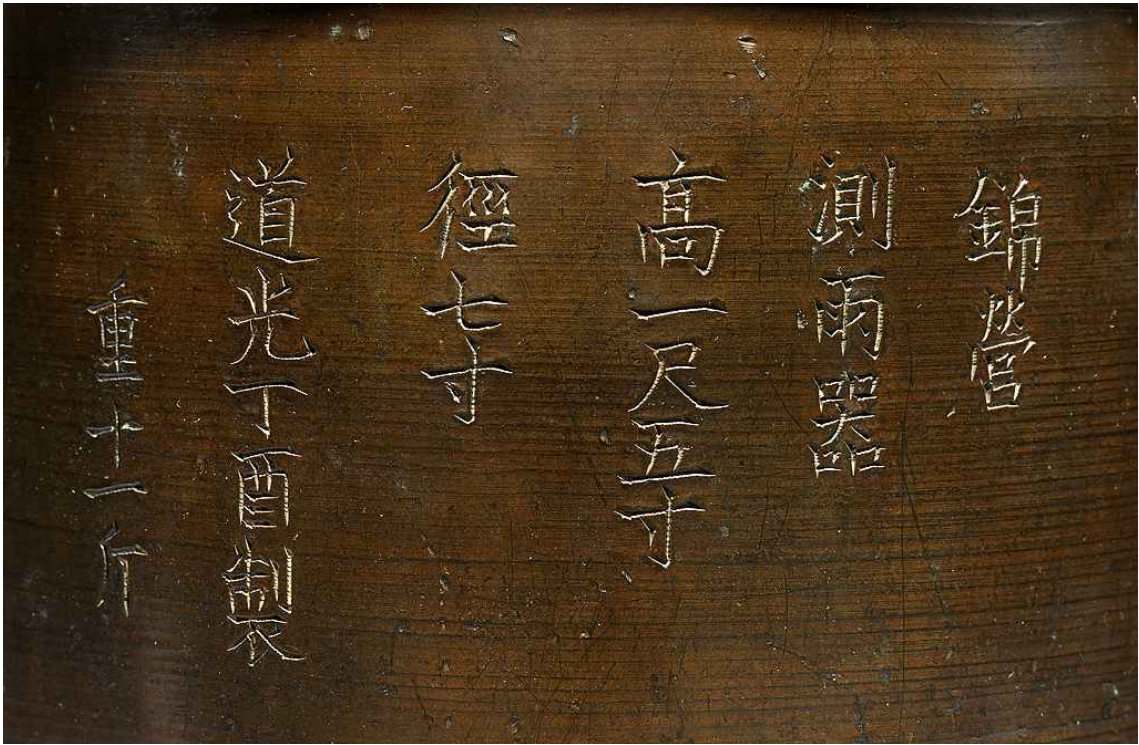 錦營
測雨器
髙一尺五寸
徑七寸
道光丁酉製
重十一斤